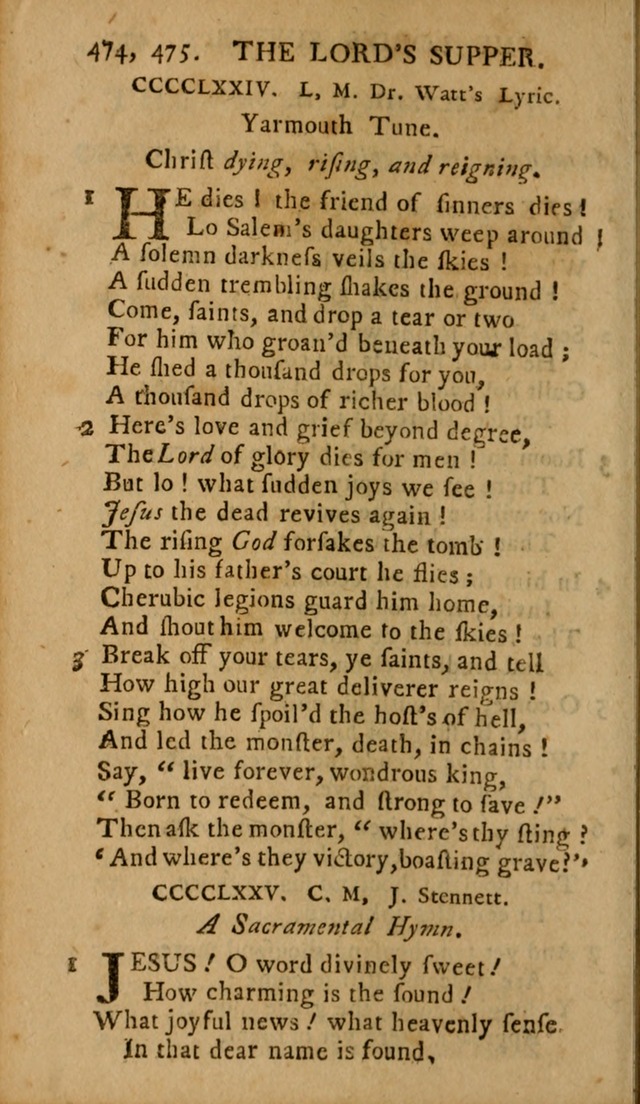 474, 475. THE LORD'S SUPPER.
CCCCLXXIV. L, M. Dr. Watt's Lyric.
Yarmouth Tune.
Chriſt dying, riſing, and reigning.
1 HE dies ! the friend of ſinners dies !
Lo Salem's daughters weep around !
A ſolemn darkneſs veils the ſkies !
A ſudden trembling ſhakes the ground !
Come, ſaints, and drop a tear or two
For him who groan'd beneath your load ;
He ſhed a thouſand drops for you,
A thouſand drops of richer blood !
2 Here's love and grief beyond degree,
The Lord of glory dies for men !
But lo ! what ſudden joys we ſee !
Jeſus the dead revives again !
The riſing God forſakes the tomb !
Up to his father's court he flies ;
Cherubic legions guard him home,
And ſhout him welcome to the ſkies !
3 Break off your tears, ye ſaints, and tell
How high our great deliverer reigns !
Sing how he ſpoil'd the hoſt's of hell,
And led the monſter, death, in chains !
Say, “ live forever, wondrous king,
“ Born to redeem, and ſtrong to ſave !”
Then aſk the monſter, “ where's thy ſting ?
‘ And where's they victory, boaſting grave?”
CCCCLXXV. C. M, J. Stennett.
A Sacramental Hymn.
1 JESUS ! O word divinely ſweet !
How charming is the ſound !
What joyful news ! what heavenly ſenſe
In that dear name is found,